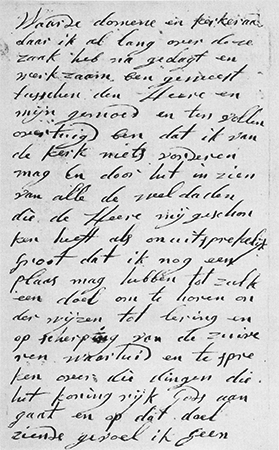 Waarde domene en kerkeraa
daar ik al lang over deze
zaak heb na gedagt en
werkzaam ben geweest
tusschen den Heere en
mijn gemoed en ten vollen
overtuigd ben dat ik van
de kerk niets vorderen
mag En door het in zien
van alle de weldaden
die de Heere mij geschon
ken heeft als onuitsprekelijk
groot dat ik nog een
plaas mag hebben tot zulk
een doel om te horen on
der wijzen tot lering en
op scherping van de zuive
ren waarheid en te spre
ken over die dingen die
het koningrijk Gods aan
gaat en op dat doel
ziende gevoel ik geen